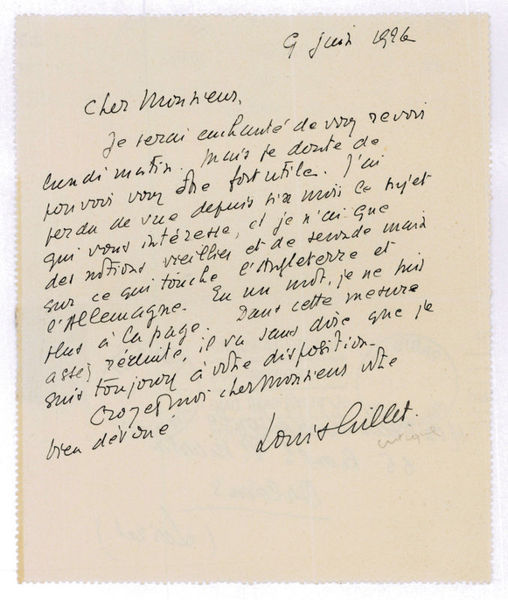 9 juin 1926
Cher Monsieur,
Je serai enchanté de vous revoir
lundi matin. Mais je doute de
pouvoir vous être fort utile. J'ai
perdu de vue depuis six mois ce sujet
qui vous intéresse, et je n'ai que
des notions vieillies et de seconde main
sur ce qui touche l'Angleterre et
l'Allemagne. En un mot, je ne suis
plus à la page. Dans cette mesure
assez réduite, il va sans dire que je
suis toujours à votre disposition.
Croyez moi cher Monsieur votre
bien dévoué
Louis Gillet.